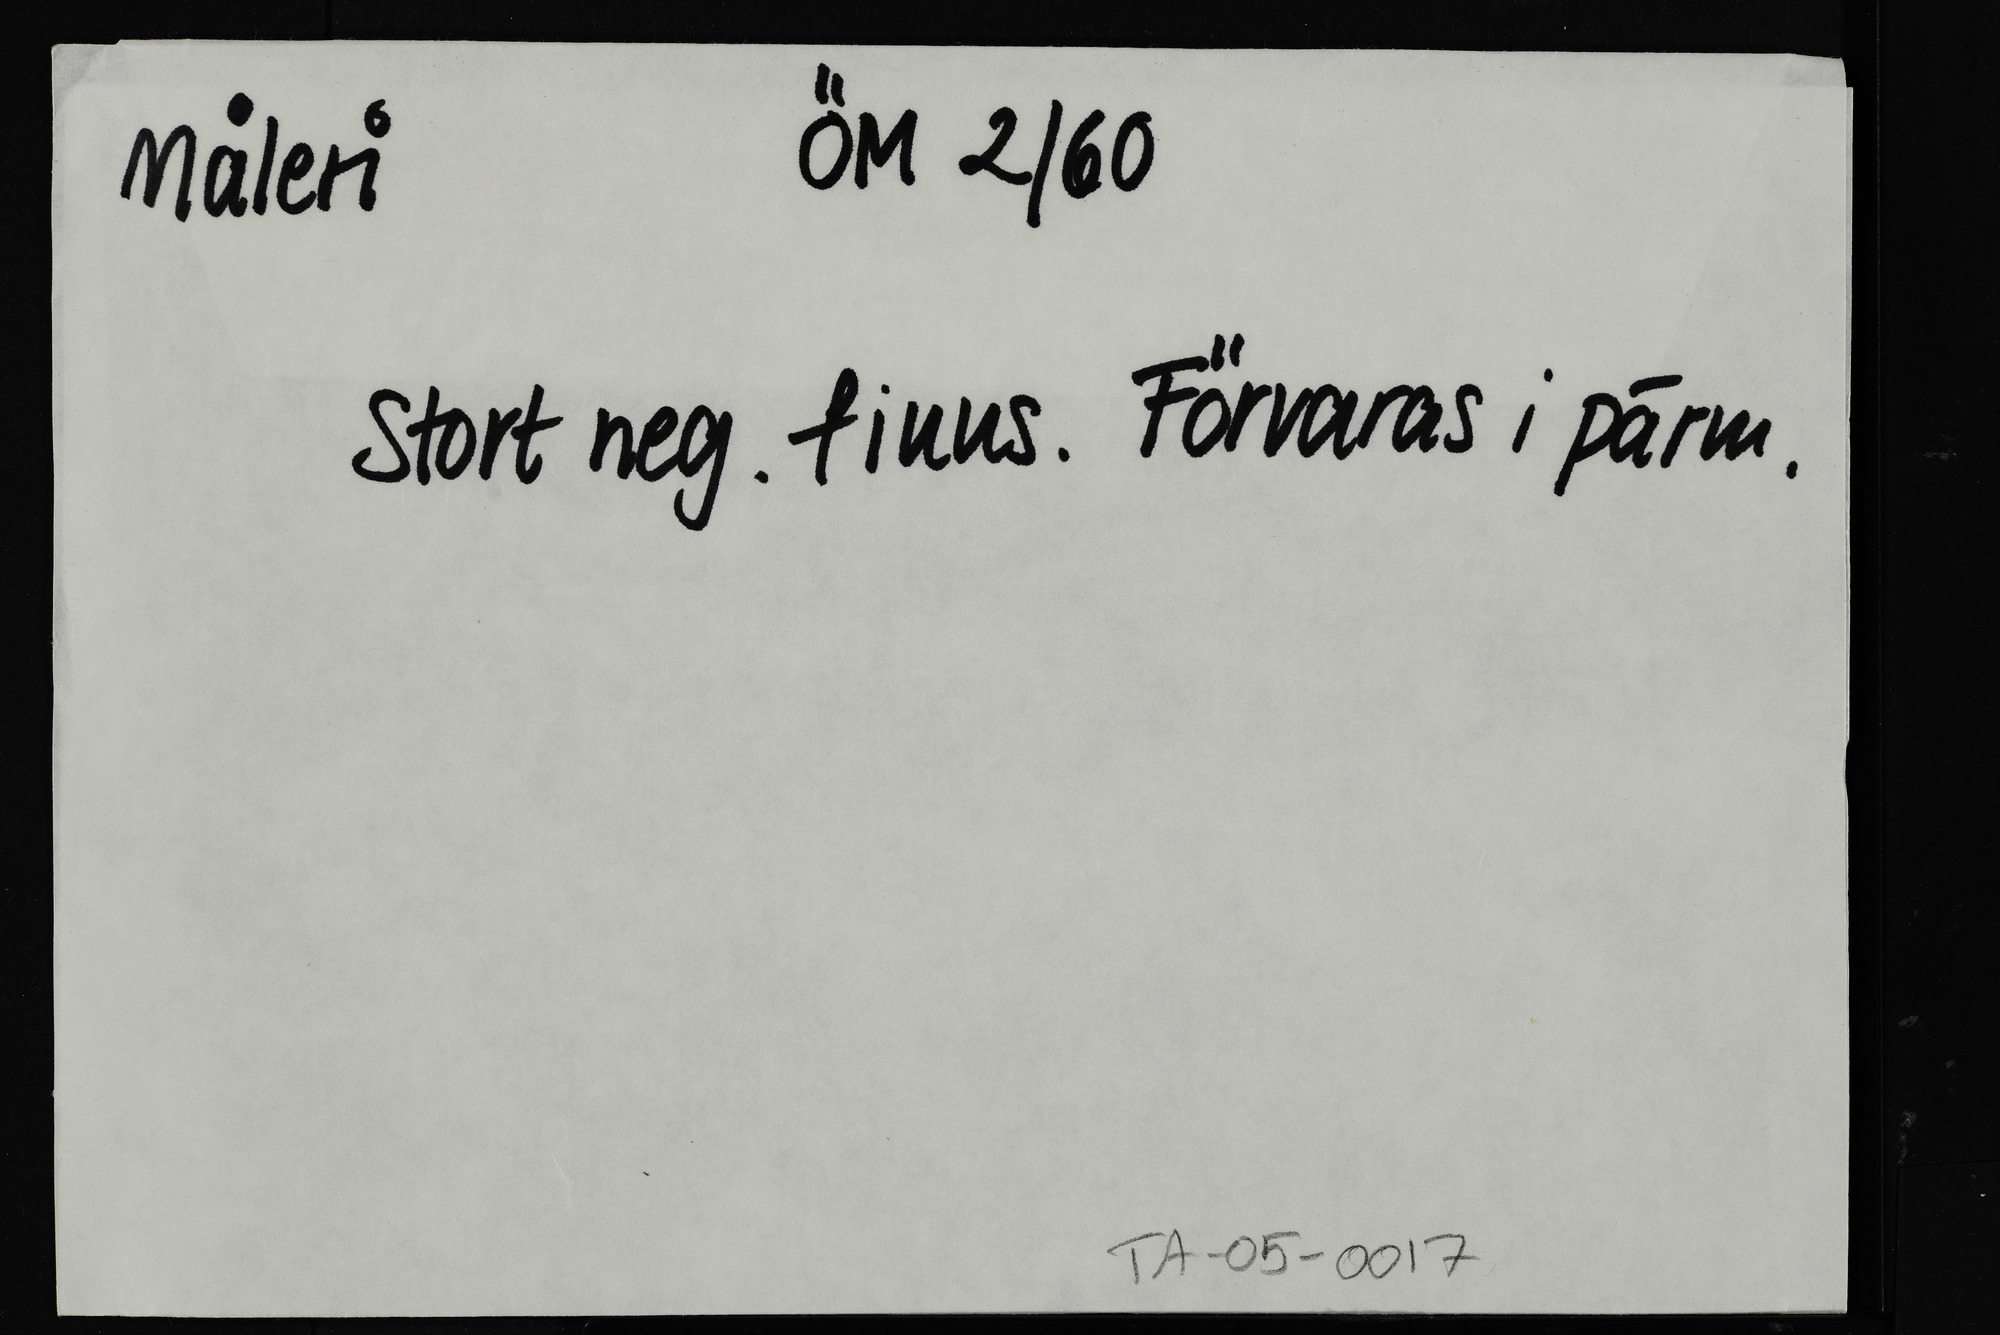 Måleri ÖM 2/60
Stort neg. finns. Förvaras i pärm.
TA-05-0017